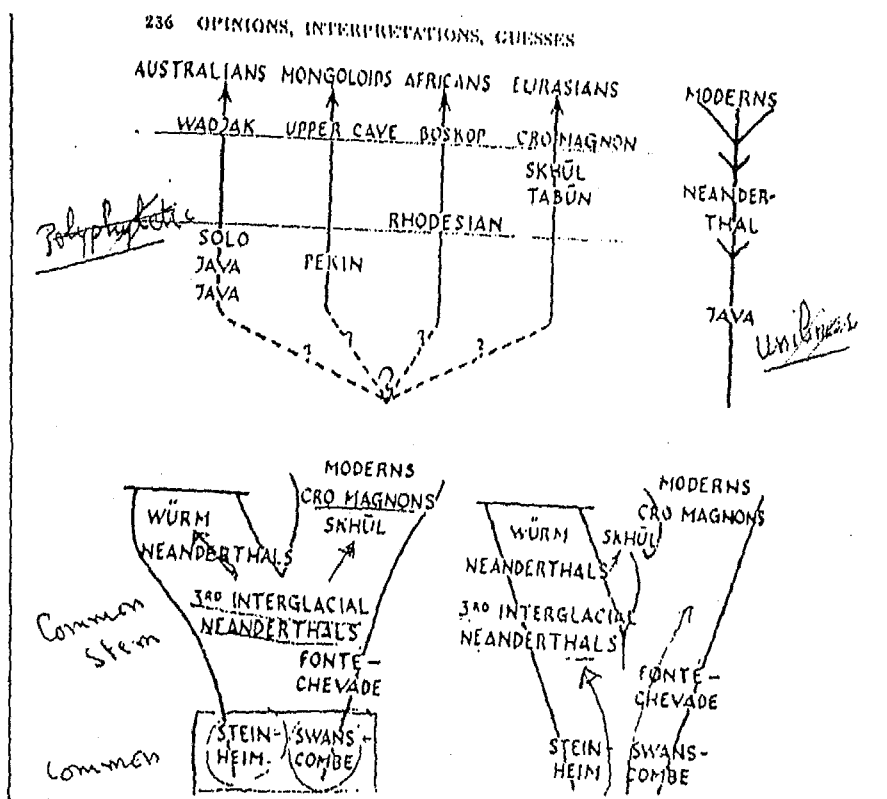 236 OPINIONS, INTERPRETATIONS, GUESSES
AUSTRALIANS MONGOLOIDS AFRICANS EURASIANS
WADJAK UPPER CAVE BOSKOP CRO MAGNON
SKHŪL
TABŪN
RHODESIAN
Polyphyletic
SOLO
JAVA
JAVA
PEKIN
? ? ? ?
?
MODERNS
NEANDER-
THAL
JAVA
Unilinear
MODERNS
CRO MAGNONS
SKHŪL
WÜRM
NEANDERTHALS
3RD INTERGLACIAL
NEANDERTHALS
FONTE-
CHEVADE
Common
Stem
STEIN-
HEIM
SWANS-
COMBE
Common
MODERNS
CRO MAGNONS
SKHŪL
WÜRM
NEANDERTHALS
3RD INTERGLACIAL
NEANDERTHALS
FONTE-
CHEVADE
STEIN
HEIM
SWANS-
COMBE